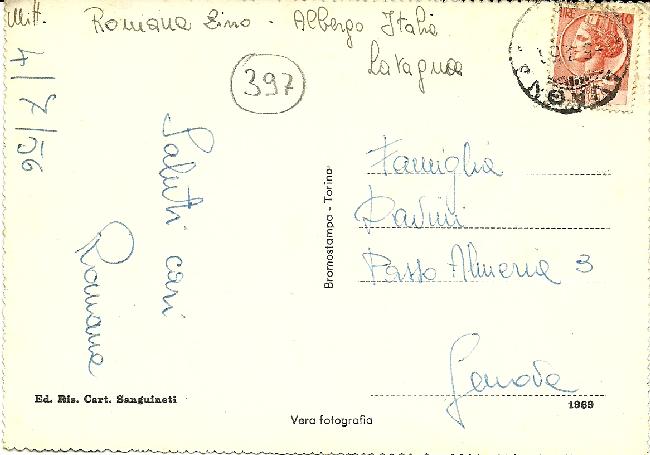 Mitt. Romana Zino - Albergo Italia
Lavagna
397
4/7/56
Saluti cari
Romana
Bromostampa - Torino
Famiglia
Pavini
Passo Almeria 3
Genova
Ed. Ris. Cart. Sanguineti
Vera fotografia
1969